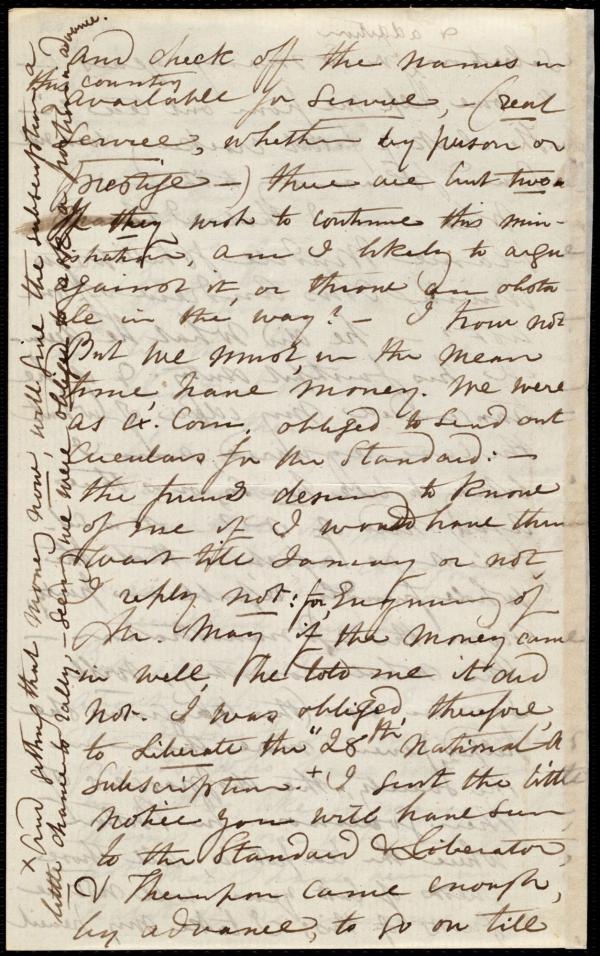 and check off the names in
this country
available for service, - (real
service, whether by person or
prestige -) there are but two.
If they wish to continue this min-
istration, am I likely to argue
against it, or throw an obsta
cle in the way? - I trow not
But we must, in the mean
time, have money. We were
as Ex. Com. obliged to send out
Circulars for the Standard: -
the friends desiring to know
of me if I would have them
wait till January or not,
I reply not: for, Enquiring of
Mr. May if the money came
in well, he told me it did
not. I was obliged, therefore,
to Liberate the "28th National A
Subscription. + I sent the little
notice you will have seen
to the Standard & Liberator,
& Thereupon came enough,
by advance, to go on till
x And getting that money now, will give the subscription a
little chance to rally, - seeing we were obliged to ask a proportion in advance.